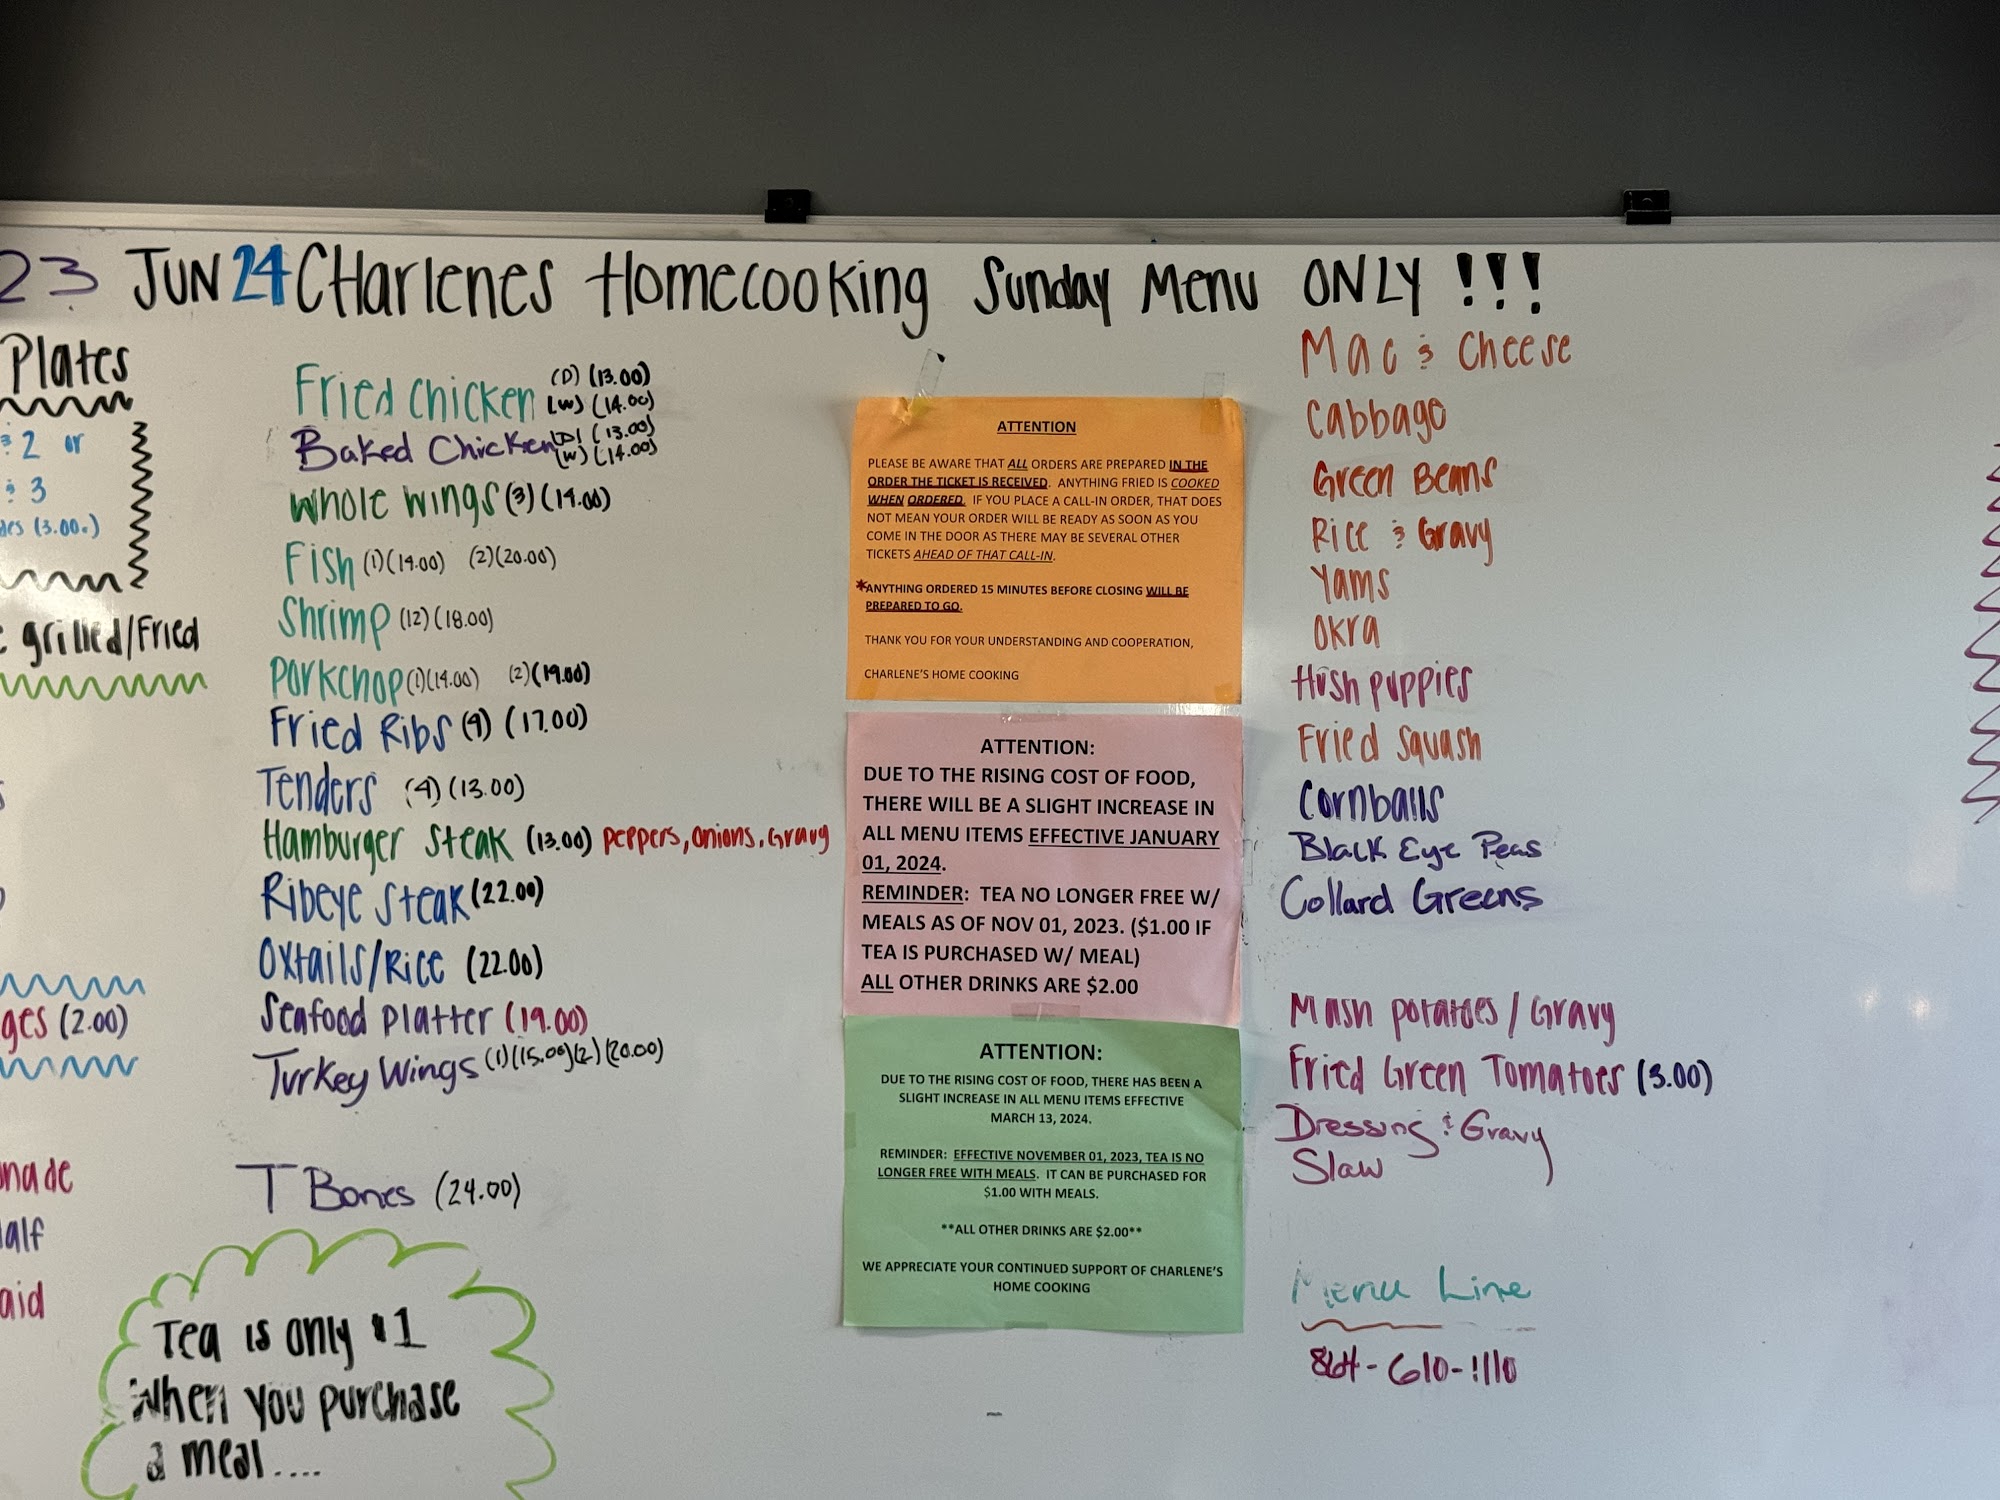 23 JUN 24 CHarlenes Homecooking Sunday Menu ONLY !!!
Plates
& 2 or
& 3
(3.00.)
grilled/Fried
ges (2.00)
nade
alf
aid
Fried Chicken (D) (13.00)
(W) (14.00)
Baked Chicken (D) (13.00)
(W) (14.00)
Whole Wings (3) (14.00)
Fish (1)(14.00) (2)(20.00)
Shrimp (12) (18.00)
Porkchop (1)(14.00) (2)(19.00)
Fried Ribs (4) (17.00)
Tenders (4) (13.00)
Hamburger Steak (13.00) Peppers, onions, Gravy
Ribeye Steak (22.00)
Oxtails/Rice (22.00)
Seafood Platter (19.00)
Turkey Wings (1)(15.00)(2)(20.00)
T Bones (24.00)
Tea is only $1
When you purchase
a meal....
ATTENTION
PLEASE BE AWARE THAT ALL ORDERS ARE PREPARED IN THE
ORDER THE TICKET IS RECEIVED. ANYTHING FRIED IS COOKED
WHEN ORDERED. IF YOU PLACE A CALL-IN ORDER, THAT DOES
NOT MEAN YOUR ORDER WILL BE READY AS SOON AS YOU
COME IN THE DOOR AS THERE MAY BE SEVERAL OTHER
TICKETS AHEAD OF THAT CALL-IN.
*ANYTHING ORDERED 15 MINUTES BEFORE CLOSING WILL BE
PREPARED TO GO.
THANK YOU FOR YOUR UNDERSTANDING AND COOPERATION,
CHARLENE'S HOME COOKING
ATTENTION:
DUE TO THE RISING COST OF FOOD,
THERE WILL BE A SLIGHT INCREASE IN
ALL MENU ITEMS EFFECTIVE JANUARY
01, 2024.
REMINDER: TEA NO LONGER FREE W/
MEALS AS OF NOV 01, 2023. ($1.00 IF
TEA IS PURCHASED W/ MEAL)
ALL OTHER DRINKS ARE $2.00
ATTENTION:
DUE TO THE RISING COST OF FOOD, THERE HAS BEEN A
SLIGHT INCREASE IN ALL MENU ITEMS EFFECTIVE
MARCH 13, 2024.
REMINDER: EFFECTIVE NOVEMBER 01, 2023, TEA IS NO
LONGER FREE WITH MEALS. IT CAN BE PURCHASED FOR
$1.00 WITH MEALS.
**ALL OTHER DRINKS ARE $2.00**
WE APPRECIATE YOUR CONTINUED SUPPORT OF CHARLENE'S
HOME COOKING
Mac & Cheese
Cabbage
Green Beans
Rice & Gravy
Yams
Okra
Hushpuppies
Fried Squash
Cornballs
Black Eye Peas
Collard Greens
Mash potatoes/Gravy
Fried Green Tomatoes (3.00)
Dressing & Gravy
Slaw
Menu Line
864-610-1110